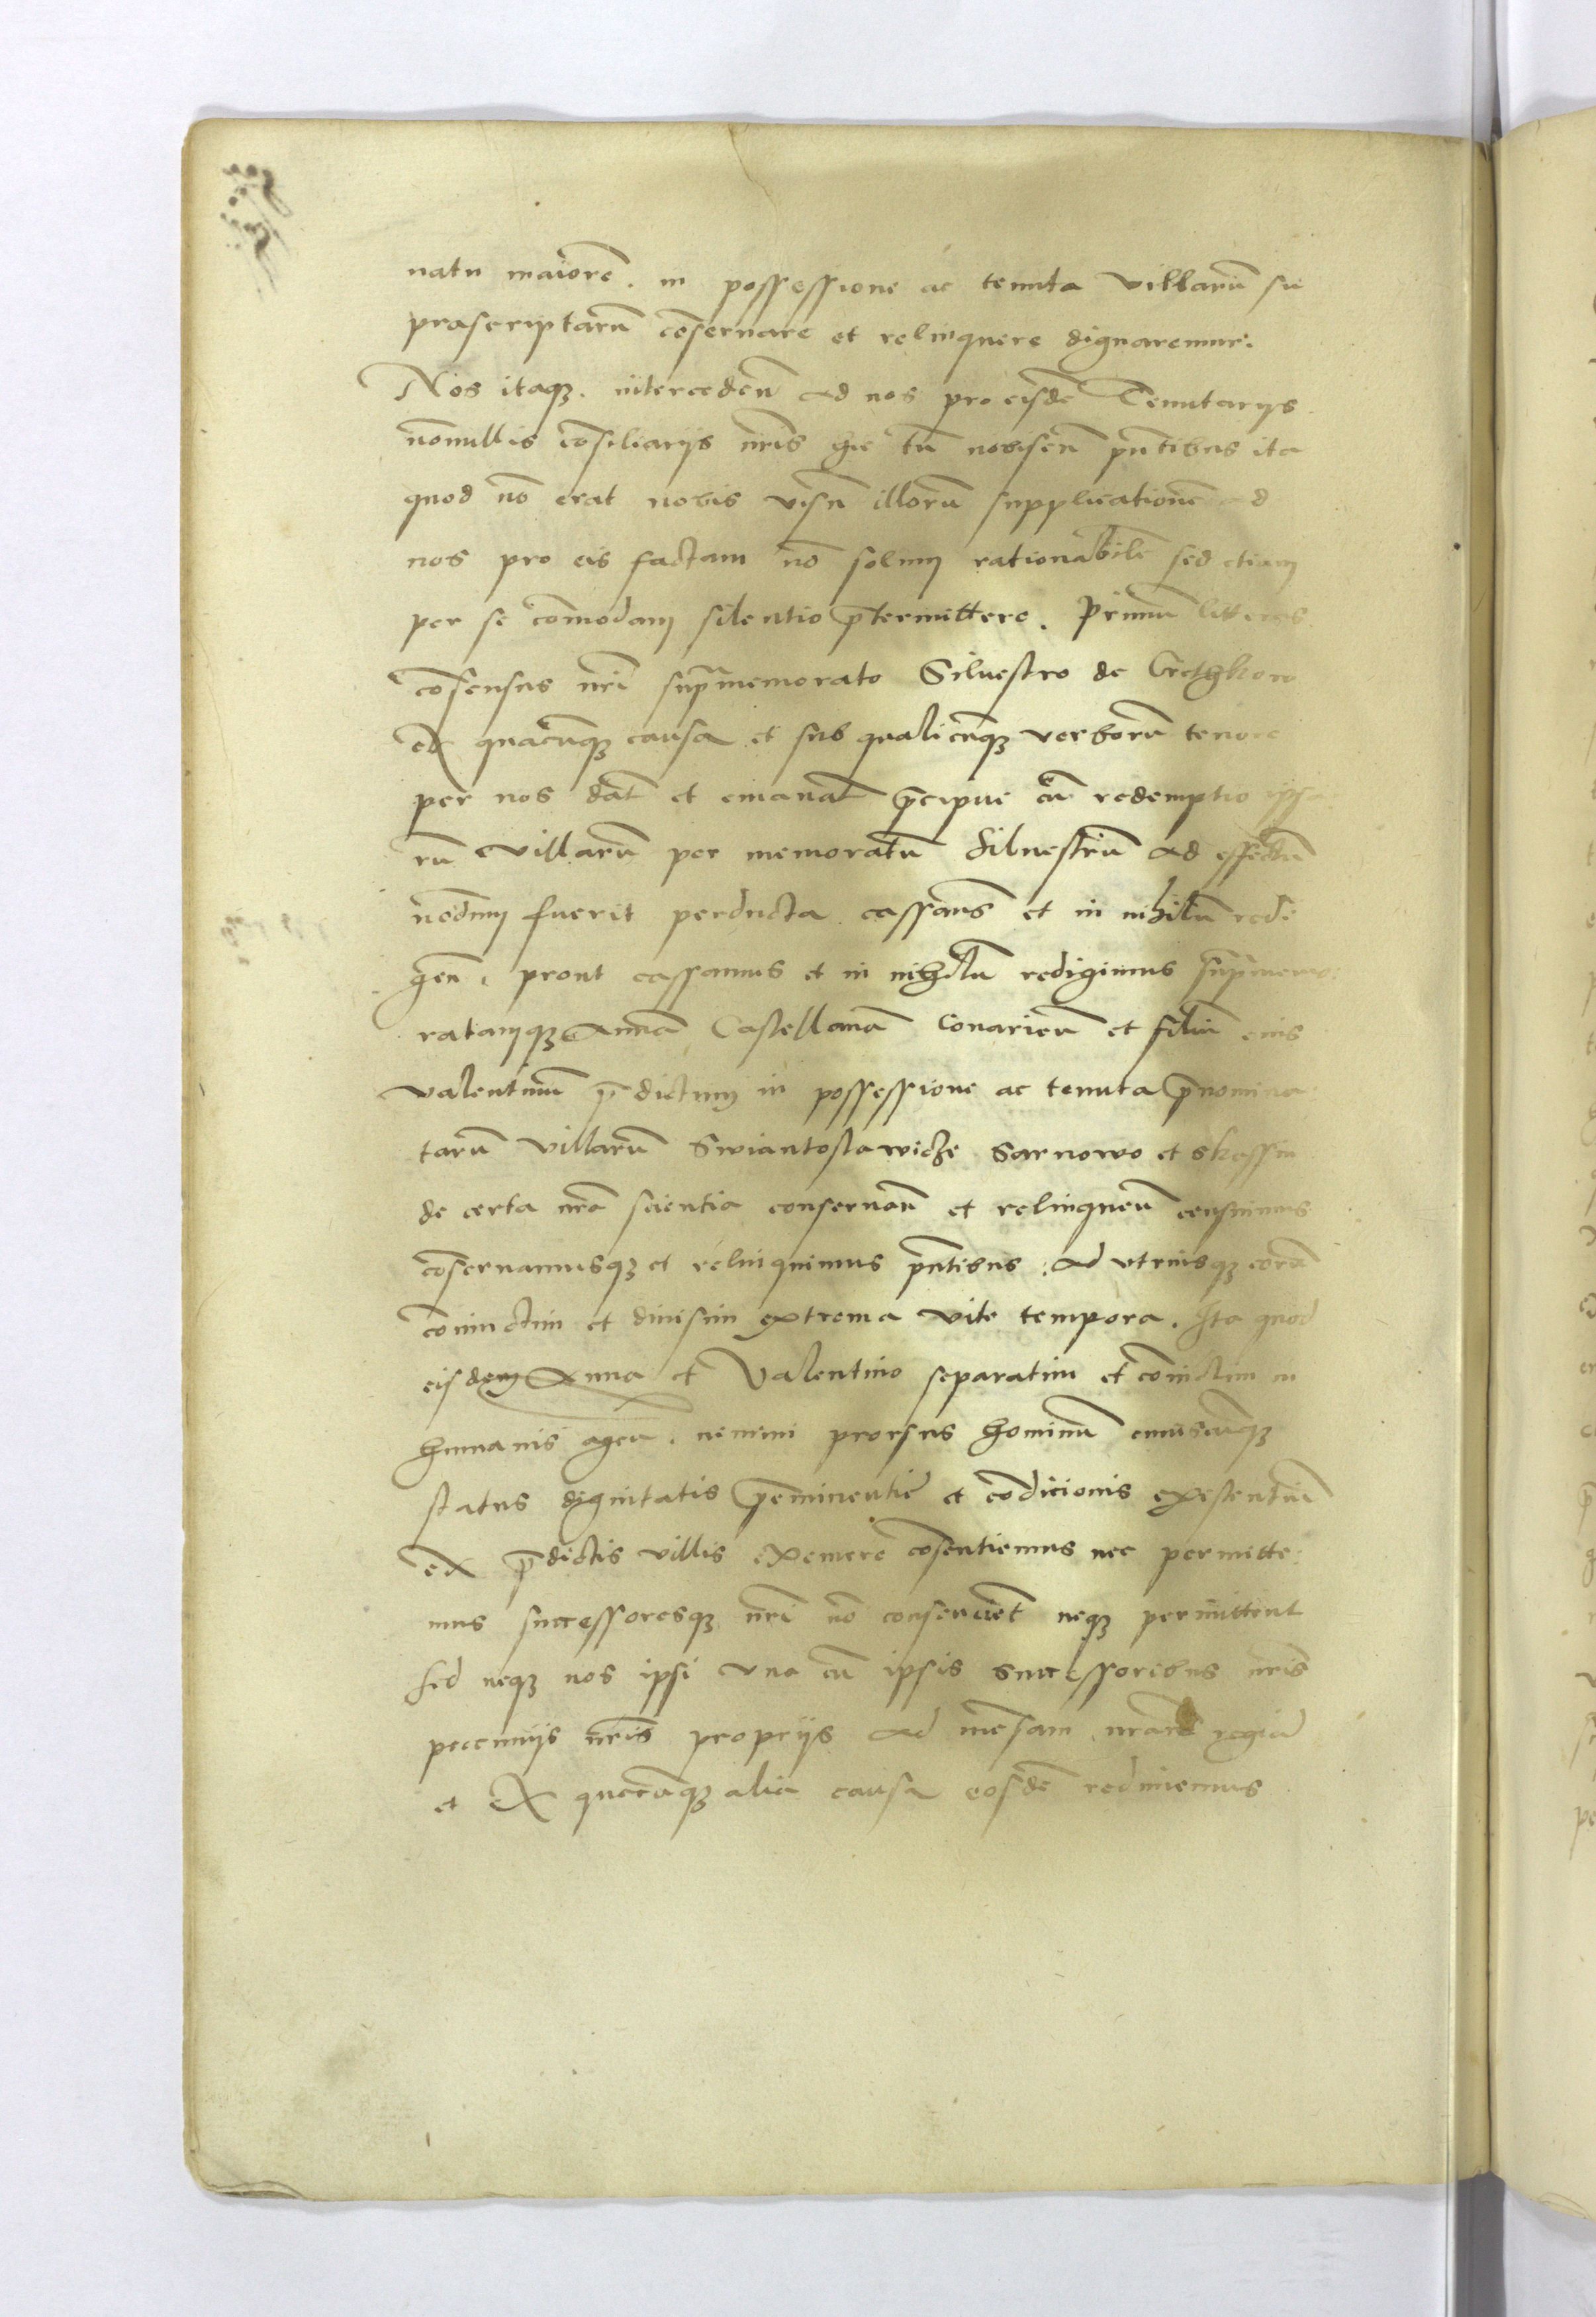 natu maiorē. in possessione ac tenuta villarū su
prascriptarū cōservare et relinquere dignaremur.
Nos itaqꝫ. intercedeñ ad nos pro eisdē Tenutarijs
nōnullis cōsiliarijs nr̄is hic tū nobiscū pñtibus ita
quod nō erat nobis visū illorū supplicationē ad
nos pro eis factam nō solum rationabilē sed etiam
per se cōmodam silentio p̄termittere. Primū litteras
cōsensus nr̄i sup̄memorato Silvestro de Gethkow
ex quacūqꝫ causa et sub qualicūqꝫ verborū tenore
per nos dat̄ et emanat̄ p̄cipue cū redemptio ipsa
rū villarū per memoratū Silvestrū ad effectū
nōdum fuerit perducta cassañs et in nihilū redi
geñ. prout cassamus et in nihilū redigimus sup̄memo
ratamqꝫ Annā Castellanā Conarieñ et filiū eius
Valentinū p̄dictum in possessione ac tenuta p̄nomina
tarū villarū Swiantoslawicze Sarnowo et Skassin
de certa nr̄a scientia conservañ et relinqueñ censuimus
cōservamusqꝫ et relinquimus pñtibus. Ad utriusqꝫ eorū
cōiunctim et divisim extrema vite tempora. Ita quod
eisdem Anna et Valentino separatim et cōiūctim in
humanis ageñ. nemini prorsus hominū cuiuscūqꝫ
status dignitatis p̄eminentie et cōdicionis existentiū
ex p̄dictis villis eximere cōsentiemus nec permitte
mus successoresqꝫ nr̄i nō consencient neqꝫ permittent
sed neqꝫ nos ipsi una cū ipsis successoribus nr̄is
peccunijs nr̄is proprijs ad mēsam nr̄am regiā
et ex quacūqꝫ alia causa eosdē redimemus